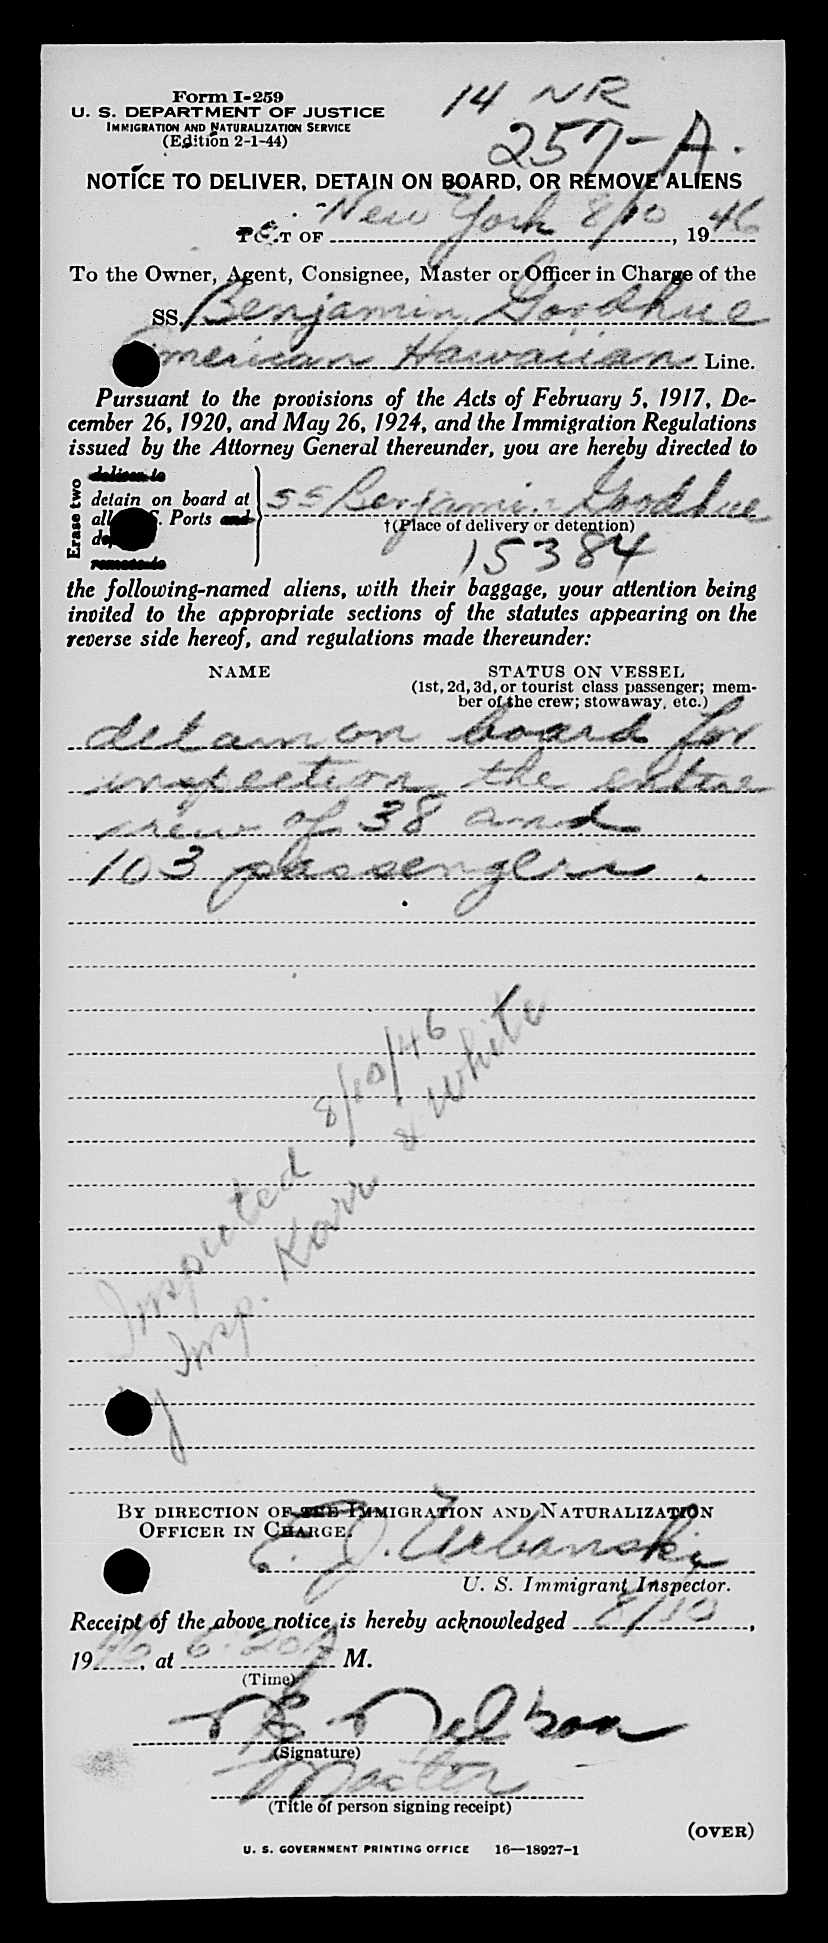 Form I-259
U. S. DEPARTMENT OF JUSTICE
IMMIGRATION AND NATURALIZATION SERVICE
(Edition 2-1-44)
14 NR
257-A.
NOTICE TO DELIVER, DETAIN ON BOARD, OR REMOVE ALIENS
OF New York 8/10, 1946
To the Owner, Agent, Consignee, Master or Officer in Charge of the
SS. Benjamin Goodhue
American Hawaiian Line.
Pursuant to the provisions of the Acts of February 5, 1917, De-
cember 26, 1920, and May 26, 1924, and the Immigration Regulations
issued by the Attorney General thereunder, you are hereby directed to
Erase two
deliver to
detain on board at
all S. Ports and
remove to
SS Benjamin Goodhue
†(Place of delivery or detention)
15384
the following-named aliens, with their baggage, your attention being
invited to the appropriate sections of the statutes appearing on the
reverse side hereof, and regulations made thereunder:
NAME STATUS ON VESSEL
(1st, 2d, 3d, or tourist class passenger; mem-
ber of the crew; stowaway, etc.)
detain on board for
inspection the entire
crew of 38 and
103 passengers.
Inspected 8/10/46
by Insp. Karr & White
BY DIRECTION OF THE IMMIGRATION AND NATURALIZATION
OFFICER IN CHARGE.
E. J. Urbanski
U. S. Immigrant Inspector.
Receipt of the above notice is hereby acknowledged 8/10,
1946, at 6:20 A M.
(Time)
Nelson
(Signature)
Master
(Title of person signing receipt)
(OVER)
U. S. GOVERNMENT PRINTING OFFICE 16—18927-1